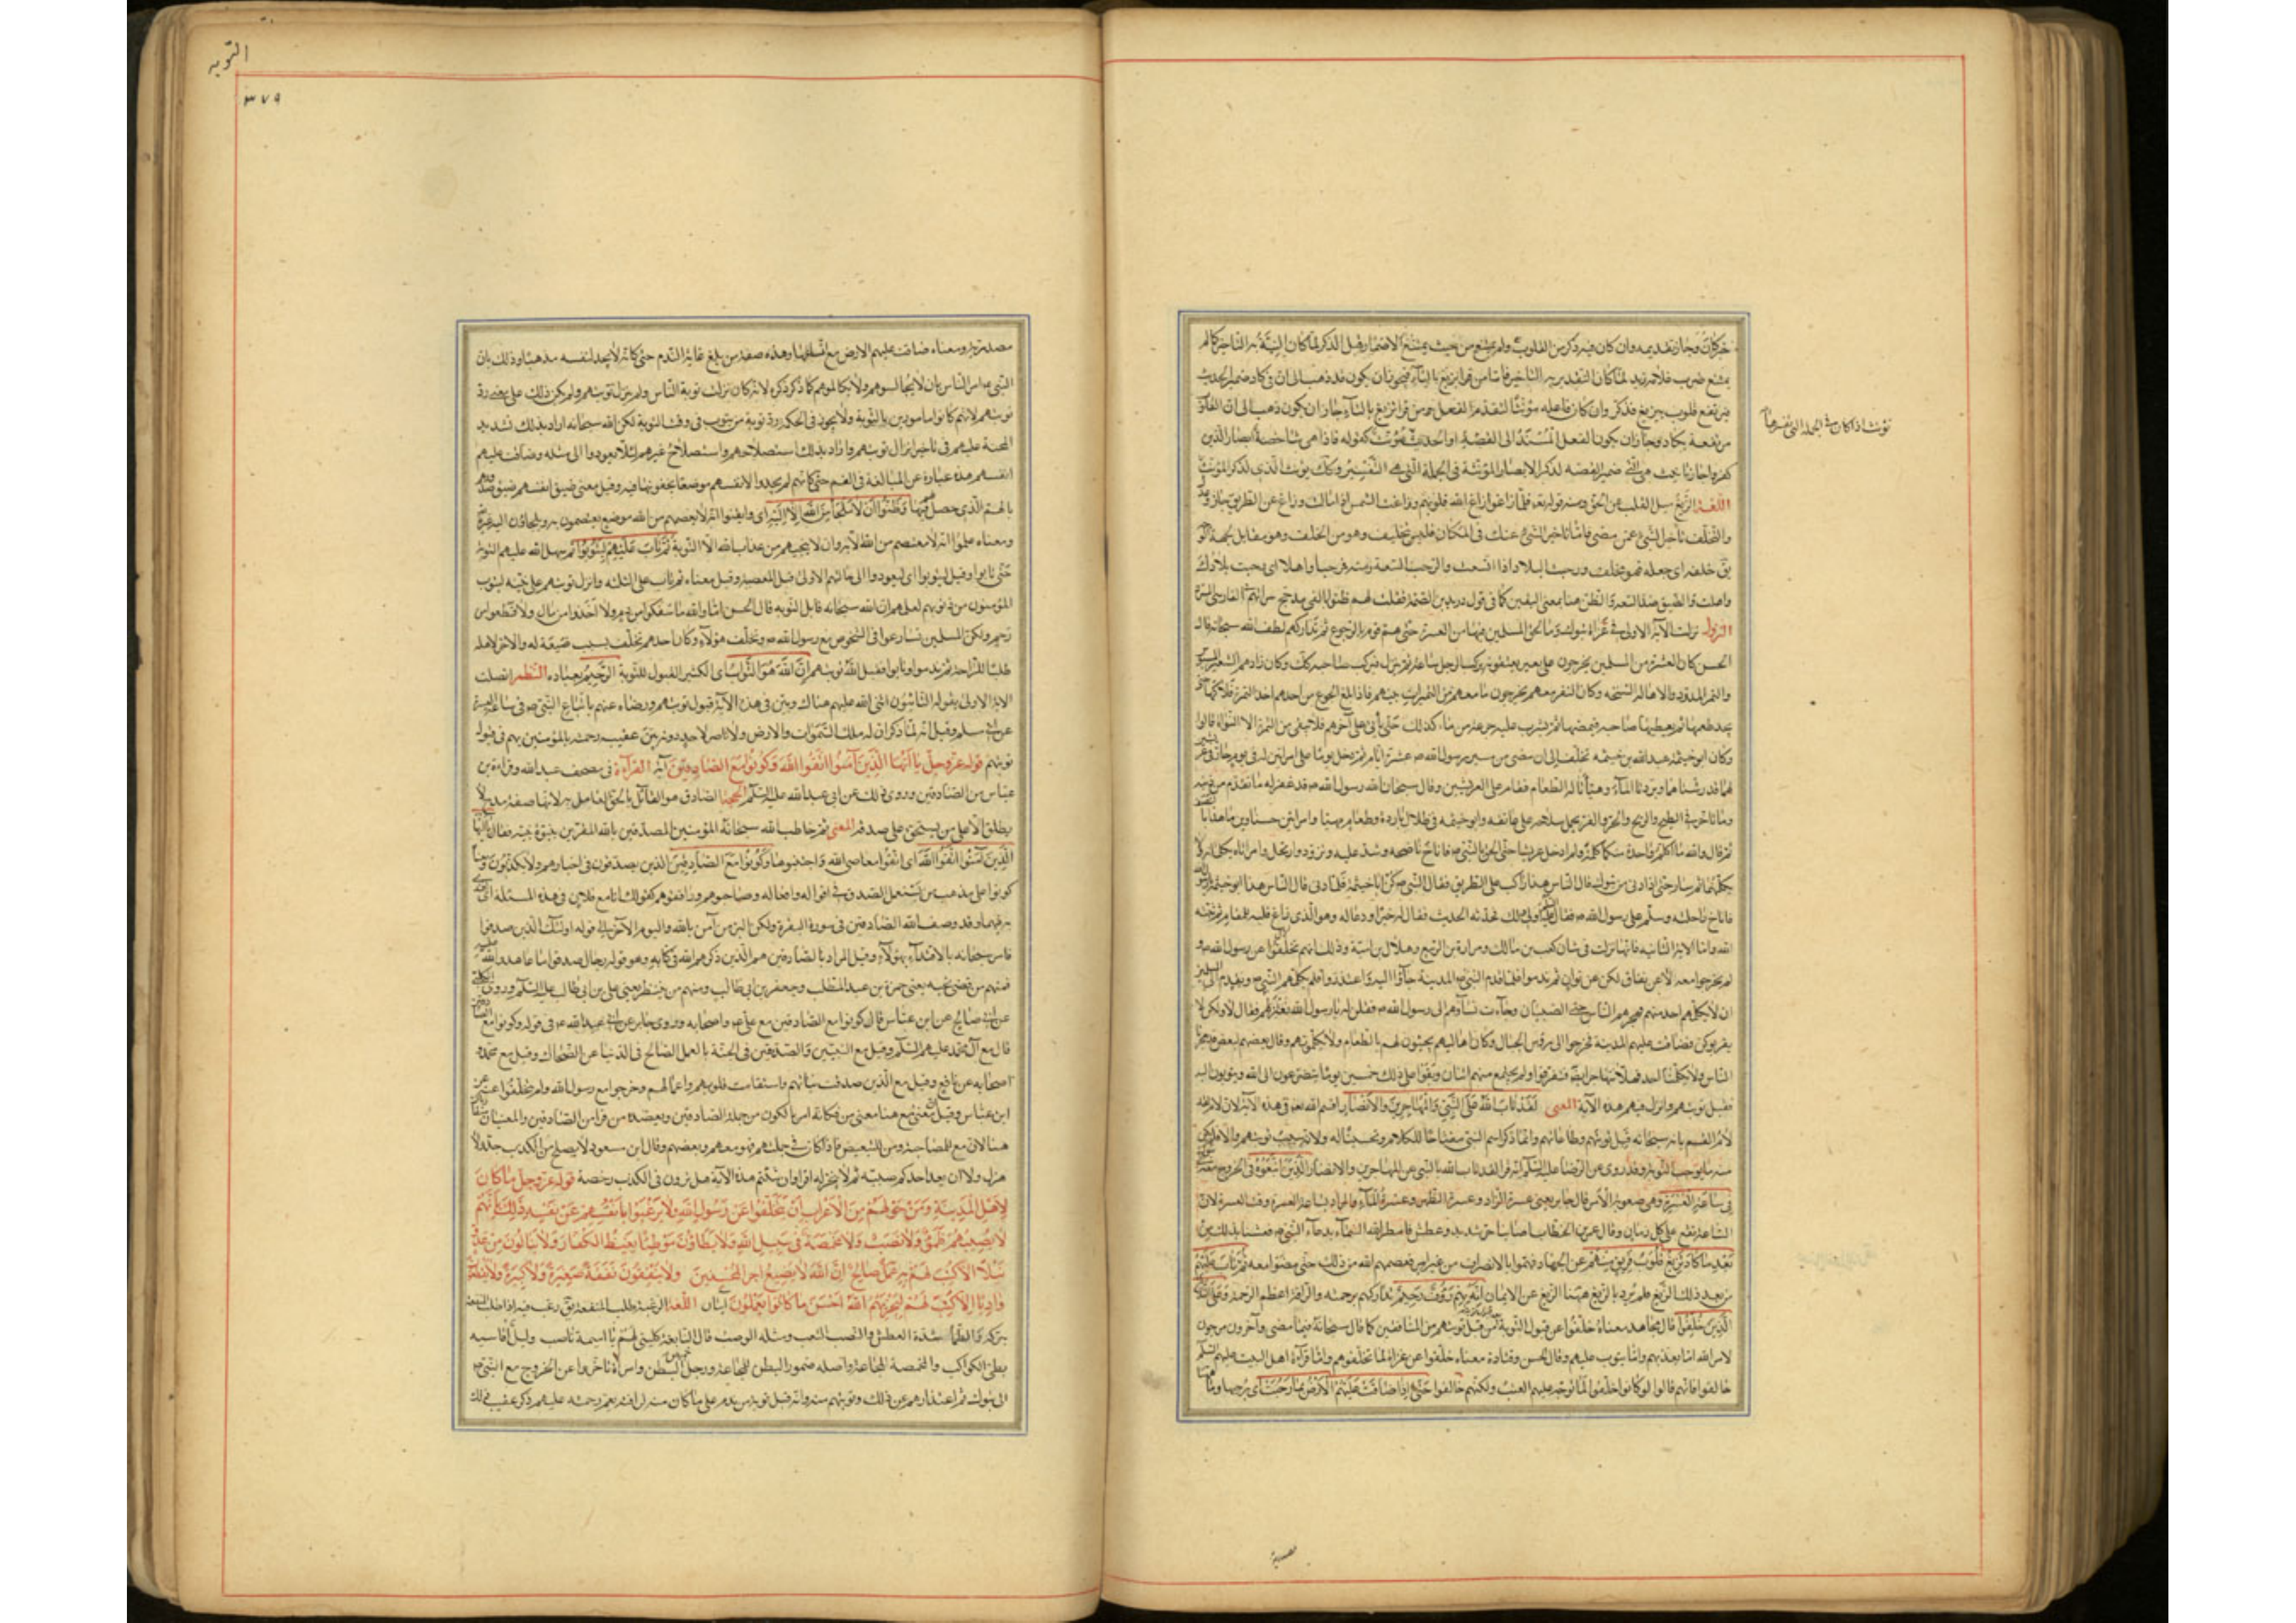 خبر كان وجاز تقديمه وان كان فيه ذكر من القلوب ولم يمتنع من حيث يمتنع الاضمار قبل الذكر لما كان النية به التاخير كما لم
يمتنع ضرب غلامه زيد لما كان التقدير به التاخير فاما من قرا يزيغ بالياء فيجوز ان يكون قد ذهب الى ان في كاد ضمير الحديث
فيرتفع قلوب بيزيغ فذكر وان كان فاعله مؤنثا لتقدم الفعل ومن قرا تزيغ بالتاء جاز ان يكون ذهب الى ان القلوب
مرتفعة بكاد وجاز ان يكون الفعل المسند الى القصة او الحديث يؤنث كقوله فاذا هي شاخصة ابصار الذين
كفروا جاز تانيث هي التي ضمير القصة لذكر الابصار المؤنثة في الجملة التي هي التفسير وكذلك يؤنث الذي لذكر المؤنث
اللغة الزيغ ميل القلب عن الحق ومنه قوله فلما زاغوا ازاغ الله قلوبهم وزاغت الشمس اذا مالت وزاغ عن الطريق جار
والتخلف تاخر الشئ عمن مضى فاما تاخر الشئ عنك في المكان فليس بتخليف وهو من الخلف وهو مقابل لجهة
يق خلفه اى جعله فهو مخلف ورحبت البلاد اذا اتسعت والرحب السعة ومنه مرحبا واهلا اى رحبت بلادك
واهلت والضيق ضد السعة والظن هنا بمعنى اليقين كما في قول دريد بن الصمة فقلت لهم ظنوا بالفي مدجج سراتهم
النزول نزلت الآية الاولى في غزاة تبوك وما لحق المسلمين فيها من العسرة حتى هم قوم بالرجوع ثم تداركهم لطف الله سبحانه قال
الحسن كان العشرة من المسلمين يخرجون على بعير يعتقبونه يركب الرجل ساعة ثم ينزل فيركب صاحبه كذلك وكان زادهم الشعير
والتمر المدود والاهالة السنخة وكان النفر منهم يخرجون ما معهم من التميرات بينهم فاذا بلغ الجوع من احدهم اخذ التمرة فلاكها حتى
يجد طعمها ثم يعطيها صاحبه فيمصها ثم يشرب عليها جرعة من ماء كذلك حتى ياتي على آخرهم فلا يبقى من التمرة الا النواة قالوا
وكان ابو خيثمة عبد الله بن خيثمة تخلف الى ان مضى من مسير رسول الله ص عشرة ايام ثم دخل يوما على امراتين له في يوم حار
لهما قد رشتاهما وبردتا الماء وهيأتا له الطعام فقام على العريشين وقال سبحان الله رسول الله ص قد غفر له ما تقدم من ذنبه
وما تاخر في الضح والريح والحر والقر يحمل سلاحه على عاتقه وابو خيثمة في ظلال باردة وطعام مهيا وامراتين حسناوين ما هذا بالنصف
ثم قال والله ما اكلم واحدة منكما كلمة ولا ادخل عريشا حتى الحق بالنبي ص فاناخ ناضحه وشد عليه وتزود وارتحل وامراتاه
يكلمانه ثم سار حتى اذا دنى من تبوك قال الناس هذا راكب على الطريق فقال النبي ص كن ابا خيثمة فلما دنى قال الناس هذا ابو خيثمة
فاناخ راحلته وسلم على رسول الله ص فقال اولى لك فحدثه الحديث فقال له خيرا ودعا له وهو الذي زاغ قلبه للمقام ثم ثبته
الله واما الآية الثانية فانها نزلت في شان كعب بن مالك ومرارة بن الربيع وهلال بن امية وذلك انهم تخلفوا عن رسول الله ص و
لم يخرجوا معه لا عن نفاق لكن عن توان ثم ندموا فلما قدم النبي ص المدينة جاؤا اليه واعتذروا فلم يكلمهم النبي ص وتقدم الى المسلمين
ان لا يكلمهم احد منهم فهجرهم الناس حتى الصبيان وجاءت نساؤهم الى رسول الله ص فقلن له يا رسول الله نعتزلهم فقال لا ولكن لا
يقربوكن فضاقت عليهم المدينة فخرجوا الى رؤس الجبال وكان اهاليهم يجيئون لهم بالطعام ولا يكلمونهم وقال بعضهم لبعض قد هجرنا
الناس ولا يكلمنا احد فهلا نتهاجر ايضا فتفرقوا ولم يجتمع منهم اثنان وبقوا على ذلك خمسين يوما يتضرعون الى الله ويتوبون اليه
فقبل توبتهم وانزل فيهم هذه الآية المعنى لقد تاب الله على النبي والمهاجرين والانصار اقسم الله في هذه الآية لان لامه
لام القسم بانه سبحانه قبل توبتهم وطاعاتهم وانما ذكر اسم النبي مفتاحا للكلام وتحسينا له ولانه سبب توبتهم والا فلم يكن
منه ما يوجب التوبة وقد روى عن الرضا عليه السلم انه قرا لقد تاب الله بالنبي عن المهاجرين والانصار الذين اتبعوه في الخروج معه
في ساعة العسرة وهي صعوبة الامر قال جابر يعني عسرة الزاد وعسرة الظهر وعسرة الماء والمراد بساعة العسرة وقت العسرة لان
الساعة تقع على كل زمان وقال عمر بن الخطاب اصابنا حر شديد وعطش فامطر الله السماء بدعاء النبي ص فعشنا بذلك من
بعد ما كاد تزيغ قلوب فريق منهم عن الجهاد فهموا بالانصراف من غير امر فعصمهم الله من ذلك حتى مضوا معه ثم تاب عليهم
من بعد ذلك الزيغ فلم يرد بالزيغ ههنا الزيغ عن الايمان انه بهم رؤف رحيم تداركهم برحمته والرافة اعظم الرحمة وعلى الثلثة
الذين خلفوا قال مجاهد معناه خلفوا عن قبول التوبة بعد قبول توبة من قبل توبتهم من المنافقين كما قال سبحانه فيما مضى وآخرون مرجون
لامر الله اما يعذبهم واما يتوب عليهم وقال الحسن وقتادة معناه خلفوا عن غزاة لما تخلفوهم واما قراءة اهل البيت عليهم السلم
خالفوا فانهم قالوا لو كانوا خلفوا لما توجه عليهم العتب ولكنهم خالفوا حتى اذا ضاقت عليهم الارض بما رحبت اى برحبها وما
تؤنث اذا كان في الجملة التى تفسرها
التوبه
٣٧٩
مصدرية ومعناه ضاقت عليهم الارض مع اتساعها وهذه صفة من بلغ غاية الندم حتى كانه لا يجد لنفسه مذهبا وذلك بان
النبي ص امر الناس بان لا يجالسوهم ولا يكالموهم كما ذكر ذكره لانه كان نزلت توبة الناس ولم ينزل توبتهم ولم يكن ذلك على معنى رد
توبتهم لانهم كانوا مامورين بالتوبة ولا يجوز في الحكمة رد توبة من يتوب في وقت التوبة لكن الله سبحانه اراد بذلك تشديد
المحنة عليهم في تاخير انزال توبتهم واراد بذلك استصلاحهم واستصلاح غيرهم لئلا يعودوا الى مثله وضاقت عليهم
انفسهم هذه عبارة عن المبالغة في الغم حتى كانهم لم يجدوا لانفسهم موضعا يخفونها فيه وقيل معنى ضيق انفسهم ضيق صدورهم
بالهم الذي حصل فيها وظنوا ان لا ملجأ من الله الا اليه اى وايقنوا انه لا يعصمهم من الله موضع يعتصمون به ويلجاون اليه غيره
ومعناه علموا انه لا معتصم من الله الا به وان لا ينجيهم من عذاب الله الا التوبة ثم تاب عليهم ليتوبوا ثم سهل الله عليهم التوبة
حتى تابوا وقيل ليتوبوا اى ليعودوا الى حالتهم الاولى قبل المعصية وقيل معناه ثم تاب على الثلثة وانزل توبتهم على نبيه ليتوب
المؤمنون من ذنوبهم لعلمهم ان الله سبحانه قابل التوبة قال الحسن اما والله ما سفكوا من دم ولا اخذوا من مال ولا قطعوا من
رحم ولكن المسلمين تسارعوا في الشخوص مع رسول الله ص وتخلف هؤلاء وكان احدهم تخلف بسبب ضيعة له والآخر لاهله
طلبا للراحة ثم ندموا وتابوا فقبل الله توبتهم ان الله هو التواب اى الكثير القبول للتوبة الرحيم بعباده النظم اتصلت
الآية الاولى بقوله التائبون اثنى الله عليهم هناك وبين في هذه الآية قبول توبتهم ورضاه عنهم باتباع النبي ص في ساعة العسرة
عن ابى مسلم وقيل انه لما ذكر ان له ملك السموات والارض ولا ناصر لاحد دونه بين عقيبه رحمته بالمؤمنين بهم في قبوله
توبتهم قوله عز وجل يا ايها الذين آمنوا اتقوا الله وكونوا مع الصادقين آية القراءة في مصحف عبد الله وقراءة بن
عباس من الصادقين وروى ذلك عن ابي عبد الله عليه السلم الحجة الصادق هو القائل بالحق العامل به لانها صفة مدح لا
يطلق الا على من يستحق على صدقه المعنى ثم خاطب الله سبحانه المؤمنين المصدقين بالله المقرين بنبوة نبيه فقال يا ايها
الذين آمنوا اتقوا الله اى اتقوا معاصى الله واجتنبوها وكونوا مع الصادقين الذين يصدقون في اخبارهم ولا يكذبون ومعناه
كونوا على مذهب من يستعمل الصدق في اقواله وافعاله وصاحبوهم ورافقوهم كقولك انا مع فلان في هذه المسئلة اى اقتدى
به فيها وقد وصف الله الصادقين في سورة البقرة ولكن البر من آمن بالله واليوم الآخر الى قوله اولئك الذين صدقوا
فامر سبحانه بالاقتداء بهؤلاء وقيل المراد بالصادقين هم الذين ذكرهم الله في كتابه وهو قوله رجال صدقوا ما عاهدوا الله عليه
فمنهم من قضى نحبه يعني حمزة بن عبد المطلب وجعفر بن ابي طالب ومنهم من ينتظر يعني على بن ابي طالب عليه السلم وروى الكلبي
عن ابى صالح عن ابن عباس قال كونوا مع الصادقين مع على ع واصحابه وروى جابر عن ابى عبد الله ع في قوله وكونوا مع الصادقين
قال مع آل محمد عليهم السلم وقيل مع النبيين والصديقين في الجنة بالعمل الصالح في الدنيا عن الضحاك وقيل مع محمد و
اصحابه عن نافع وقيل مع الذين صدقت نياتهم واستقامت قلوبهم واعمالهم وخرجوا مع رسول الله ولم يتخلفوا عنه عن
ابن عباس وقيل ان معنى مع هنا معنى من فكانه امر بالكون من جملة الصادقين ويعضده من قرا من الصادقين والمعنيان
هنا لان مع للمصاحبة ومن للتبعيض فاذا كان في جملتهم فهو معهم وبعضهم وقال ابن مسعود لا يصلح من الكذب جد ولا
هزل ولا ان يعد احدكم صبيه ثم لا ينجز له اقراوا ان شئتم هذه الآية هل ترون في الكذب رخصة قوله عز وجل ما كان
لاهل المدينة ومن حولهم من الاعراب ان يتخلفوا عن رسول الله ولا يرغبوا بانفسهم عن نفسه ذلك بانهم
لا يصيبهم ظمأ ولا نصب ولا مخمصة في سبيل الله ولا يطاؤن موطئا يغيظ الكفار ولا ينالون من عدو
نيلا الا كتب لهم به عمل صالح ان الله لا يضيع اجر المحسنين ولا ينفقون نفقة صغيرة ولا كبيرة ولا يقطعون
واديا الا كتب لهم ليجزيهم الله احسن ما كانوا يعملون آيتان اللغة الرغبة طلب المنفعة يق رغب فيه اذا طلب المنفعة
بتركه والظما شدة العطش والنصب التعب ومثله الوصب قال النابغة كليني لهم يا اميمة ناصب وليل اقاسيه
بطئ الكواكب والمخمصة المجاعة واصله ضمور البطن للمجاعة ورجل خميص البطن وامراة تاخروا عن الخروج مع النبي ص
الى تبوك ثم اعتذارهم عن ذلك وتوبتهم منه وانه قبل توبة من ندم على ما كان منه لرافته بهم ورحمته عليهم ذكر عقيب ذلك